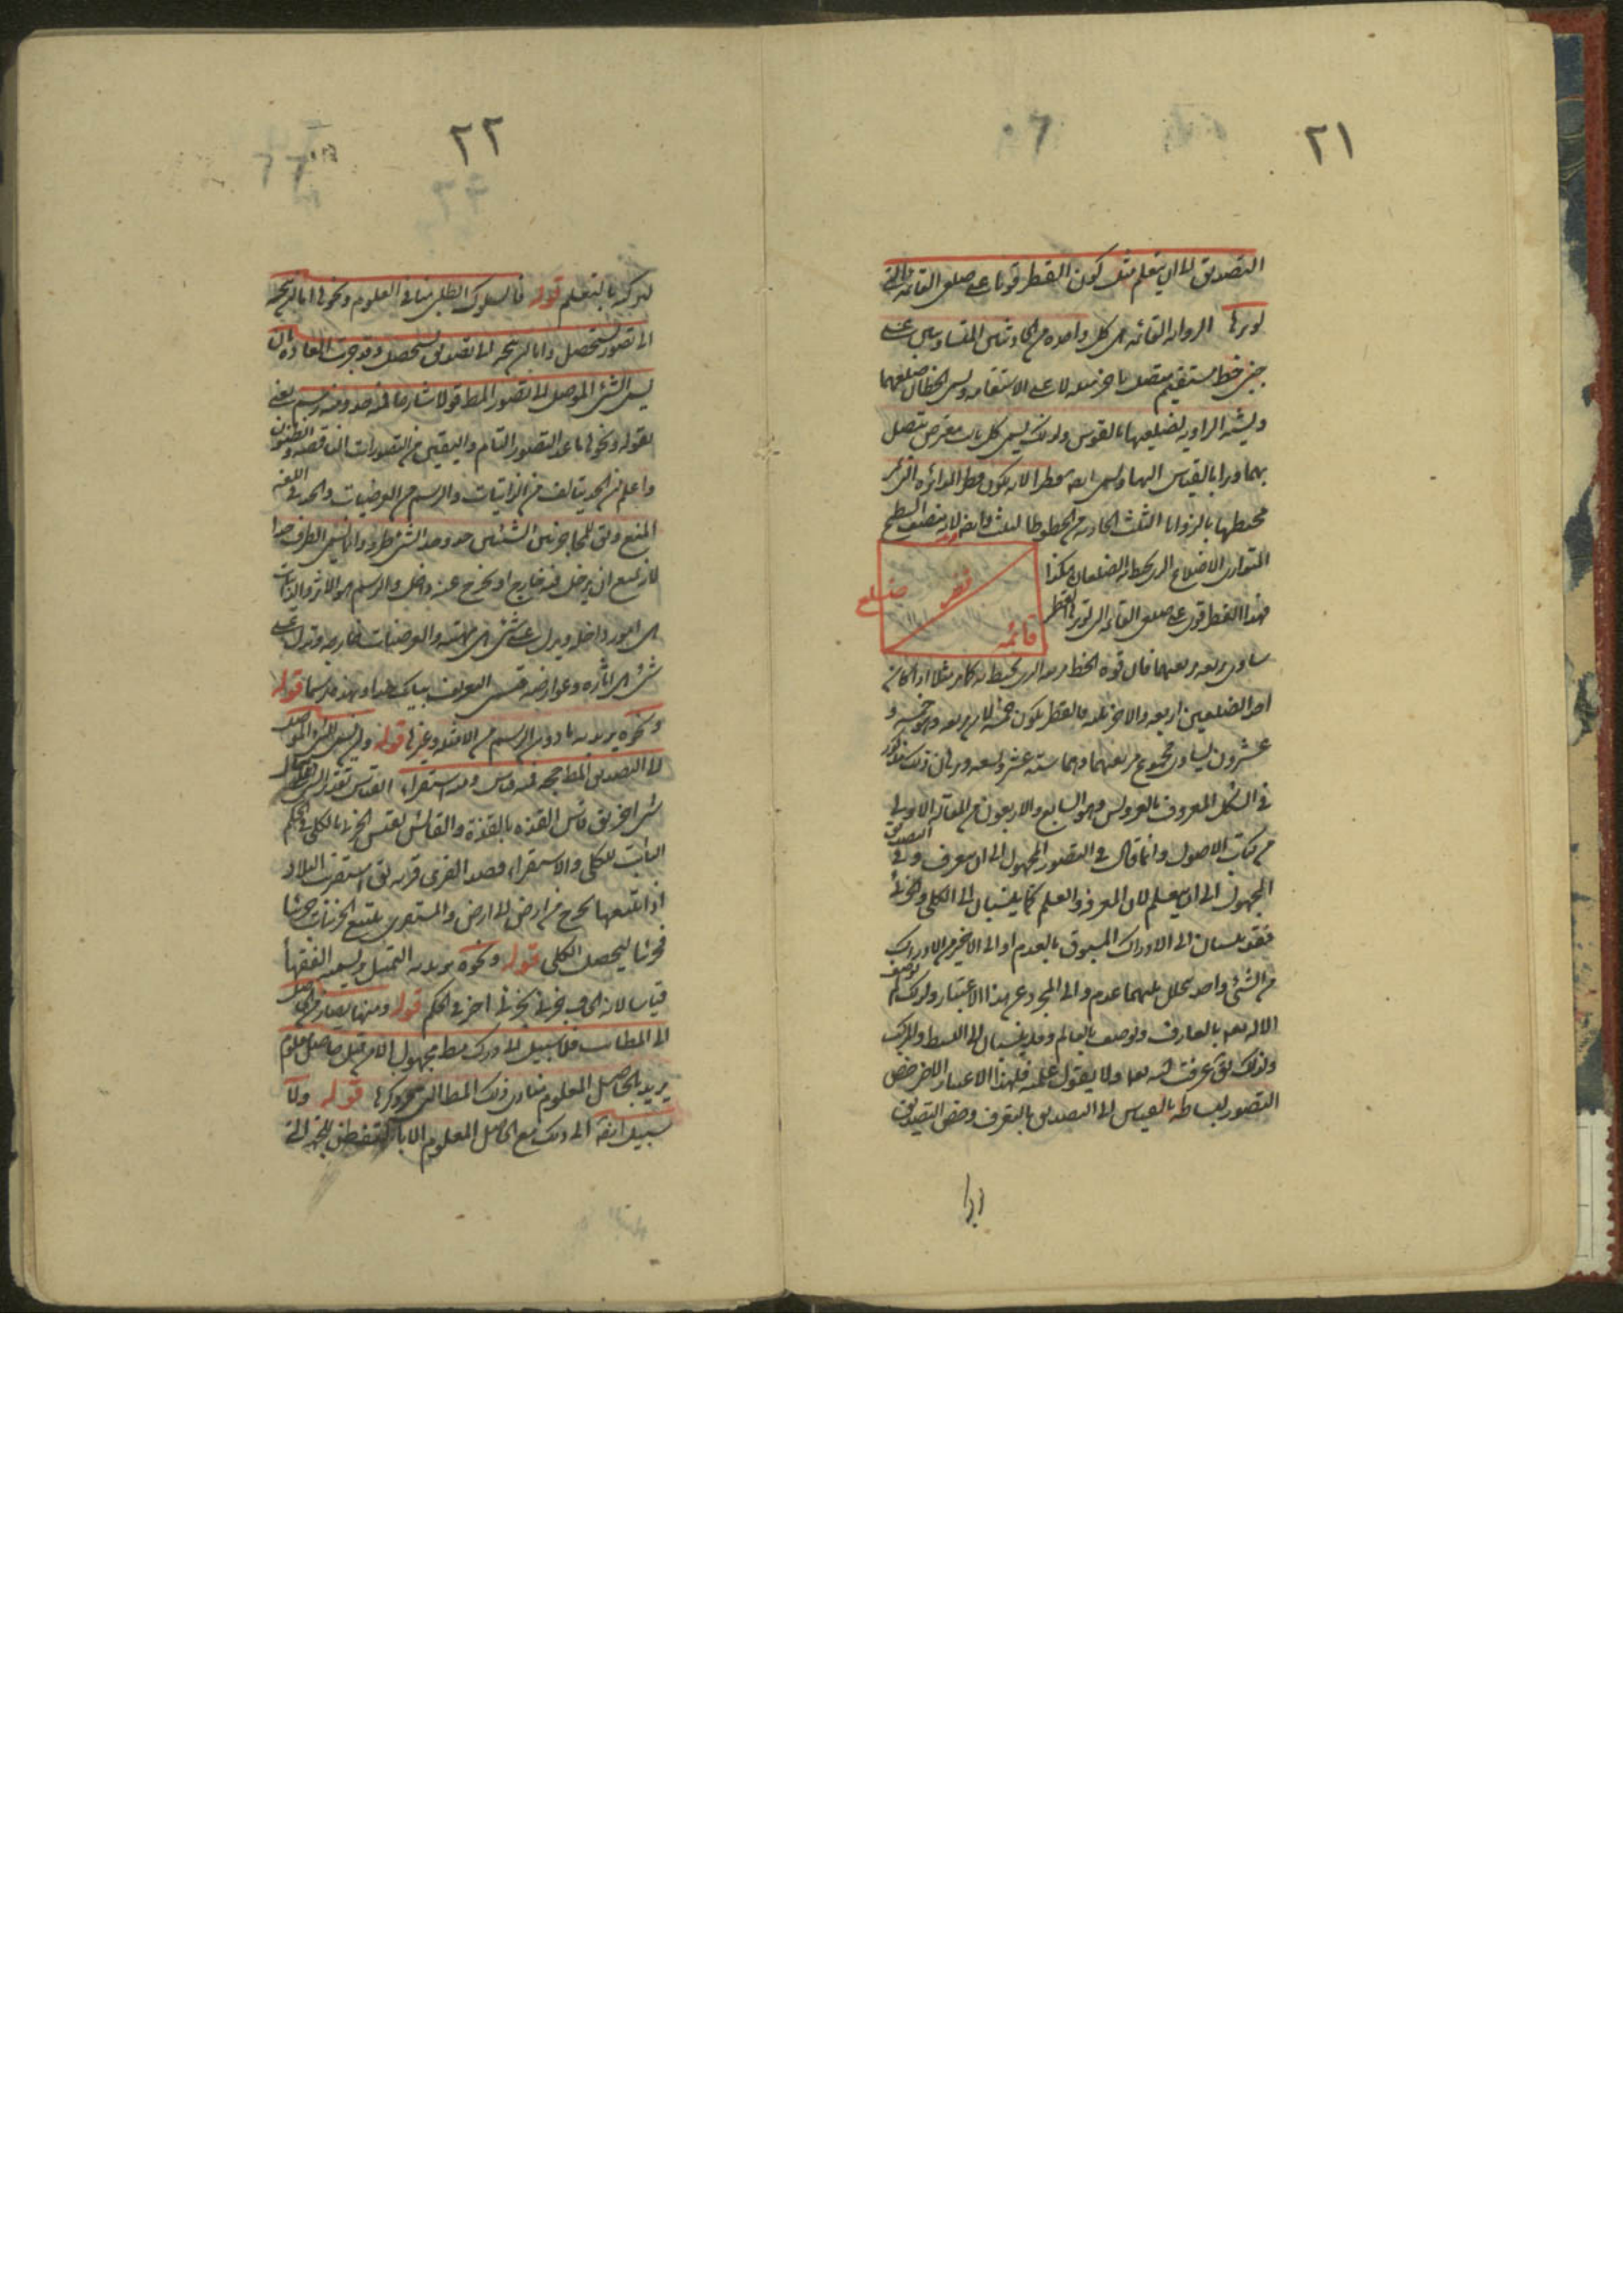 ٢١
التصديق الى ان يتعلم مثل كون القطر قويا على ضلعى القائمة التى
يوترها الزاوية القائمة هى كل واحدة من الحادثتين المتساويتين عن
جنبى خط مستقيم متصل باخر مثله لا على الاستقامة ويسمى الخطان ضلعيهما
ويشبه الزاوية لضلعيها بالقوس ولذلك يسمى كل خط معترض متصل
بهما وترا بالقياس اليها ويسمى ايضا قطرا لانه يكون قطر الدائرة التى
محيطها بالزوايا الثلث الحادثة من الخطوط الثلث وايضا لانه ينصف السطح
المتوازى الاضلاع الذى يحيط به الضلعان هكذا
فهذا القطر قوى على ضلعى القائمة التى يوترها القطر
قطر
ضلع
قائمه
يساوى مربعه مربعيهما فان قوة الخط مربعه الذى يحيط به كما مر مثلا اذا كان
احد الضلعين اربعة والاخر ثلثة فالقطر يكون خمسة لان مربعه وهو خمسة و
عشرون يساوى مجموع مربعيهما وهما ستة عشر وتسعة وبرهان ذلك مذكور
فى الشكل المعروف بالعروس وهو السابع والاربعون من المقالة الاولى
من كتاب الاصول وانما قال فى التصور المجهول الى ان يعرف وفى التصديق
المجهول الى ان يتعلم لان المعرفة والعلم كما ينسبان الى الكلى والجزئى
فقد ينسبان الى الادراك المسبوق بالعدم او الى الاخير من الادراك
من الشئ واحد يتخلل بينهما عدم والى المجرد عن هذا الاعتبار ولذلك لم يوصف
الاله تعالى بالعارف ويوصف بالعالم وقد ينسبان الى البسيط والمركب
ولذلك يقال عرفت الله تعالى ولا يقول علمته فلهذا الاعتبار الاخر خص
التصور لبساطته بالقياس الى التصديق بالتعرف وخص التصديق
٢٢
لتركبه بالتعلم قوله فالسلوك الطلبى منا فى العلوم ونحوها اما ان يتجه
الى تصور يستحصل واما ان يتجه الى تصديق يستحصل وقد جرت العادة بان
يسمى الشئ الموصل الى التصور المط قولا شارحا فمنه حد ومنه رسم يعنى
بقوله ونحوها ما عدا التصور التام واليقين من التصورات الناقصة والظنون
واعلم ان الحد يتالف من الذاتيات والرسم من العرضيات والحد فى اللغة
المنع ويق للحاجز بين الشيئين حد وحد الشئ طرفه وانما سمى الطرف حدا
لانه يمنع ان يدخل فيه خارج او يخرج عنه داخل والرسم هو الاثر والذاتيات
هى امور داخلة ويدل على شئ هى مهيته والعرضيات خارجة وتدل على
شئ هى اثاره وعوارضه فسمى التعريف بتلك حدا وبهذه رسما قوله
ونحوه يريد به ما دون الرسم من الامثلة وغيرها قوله وان يسمى الشئ الموصل
الى التصديق المط حجة فمنه قياس ومنه استقراء القياس تقدير الشئ على مثال
شئ اخر يق قاس القذة بالقذة والقائس يقيس الجزئى بالكلى فى الحكم
الثابت للكلى والاستقراء قصد القرى قرية يق استقريت البلاد
اذا تتبعها يخرج من ارض الى ارض والمستقرى يتتبع الجزئيات جزئيا
فجزئيا ليحصل الكلى قوله ونحوه يريد به التمثيل ويسميه الفقهاء
قياسا لانه الحاق جزئى بجزئى اخر فى الحكم قوله ومنهما يصار من الحاصل
الى المطالب فلا سبيل الى درك مط مجهول الا من قبل حاصل معلوم
يريد بالحاصل المعلوم مبادى ذلك المطالب مر ذكرها قوله ولا
سبيل ايضا الى ذلك مع الحاصل المعلوم الا بالتفطن للجهة التى